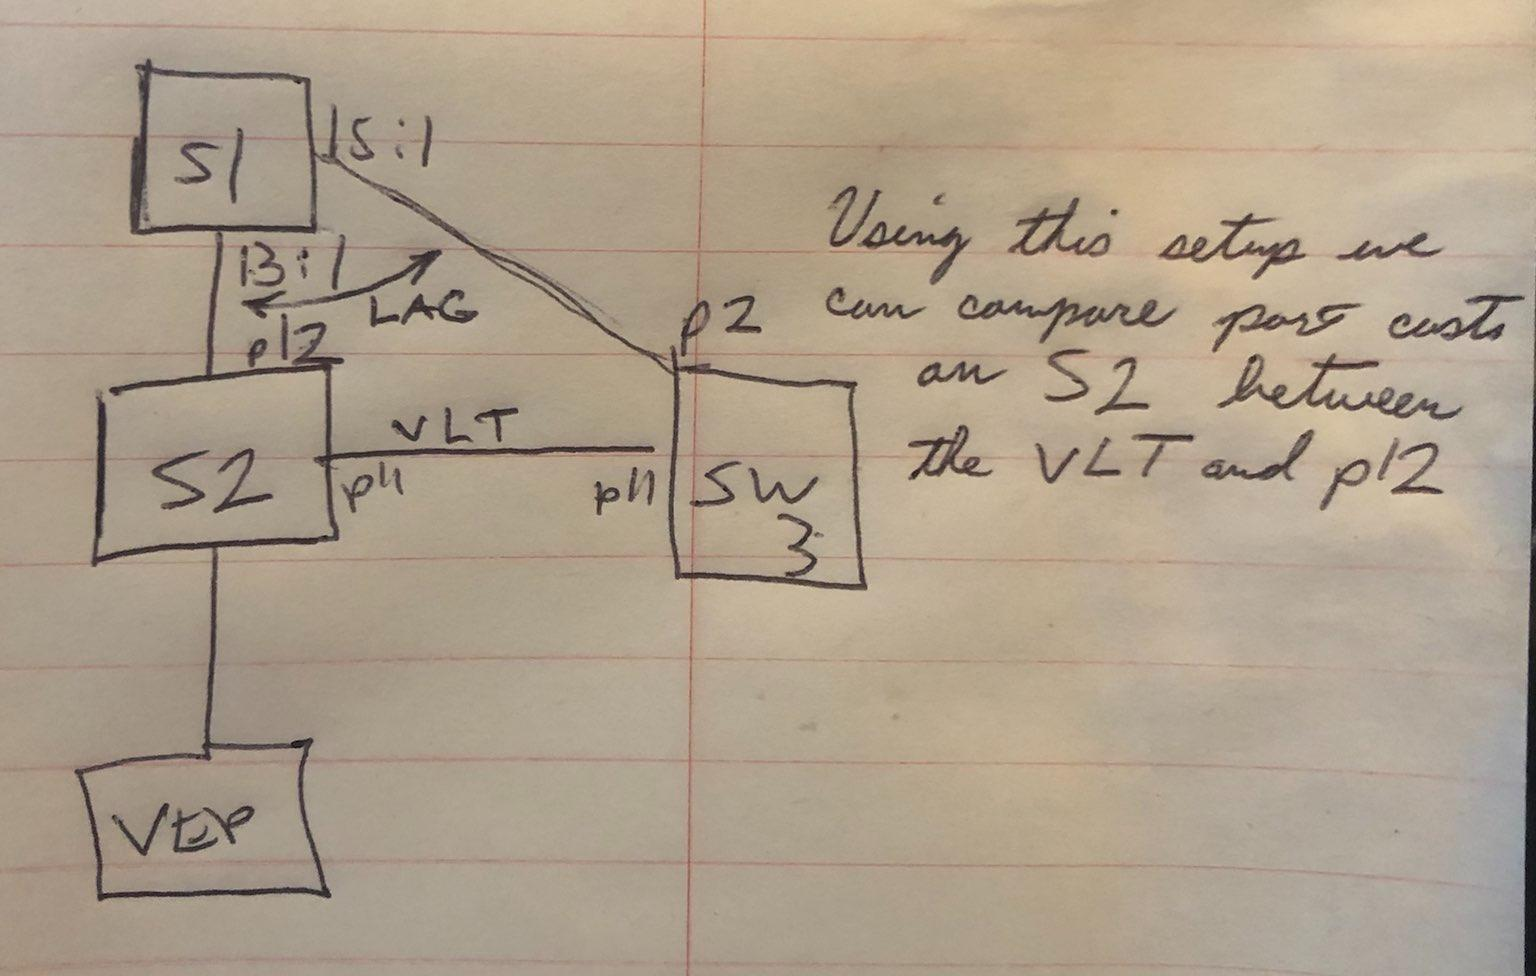 S1
15:1
13:1
LAG
p12
p2
S2
VLT
p11
p11
SW
3
VEP
Using this setup we
can compare port costs
on S2 between
the VLT and p12